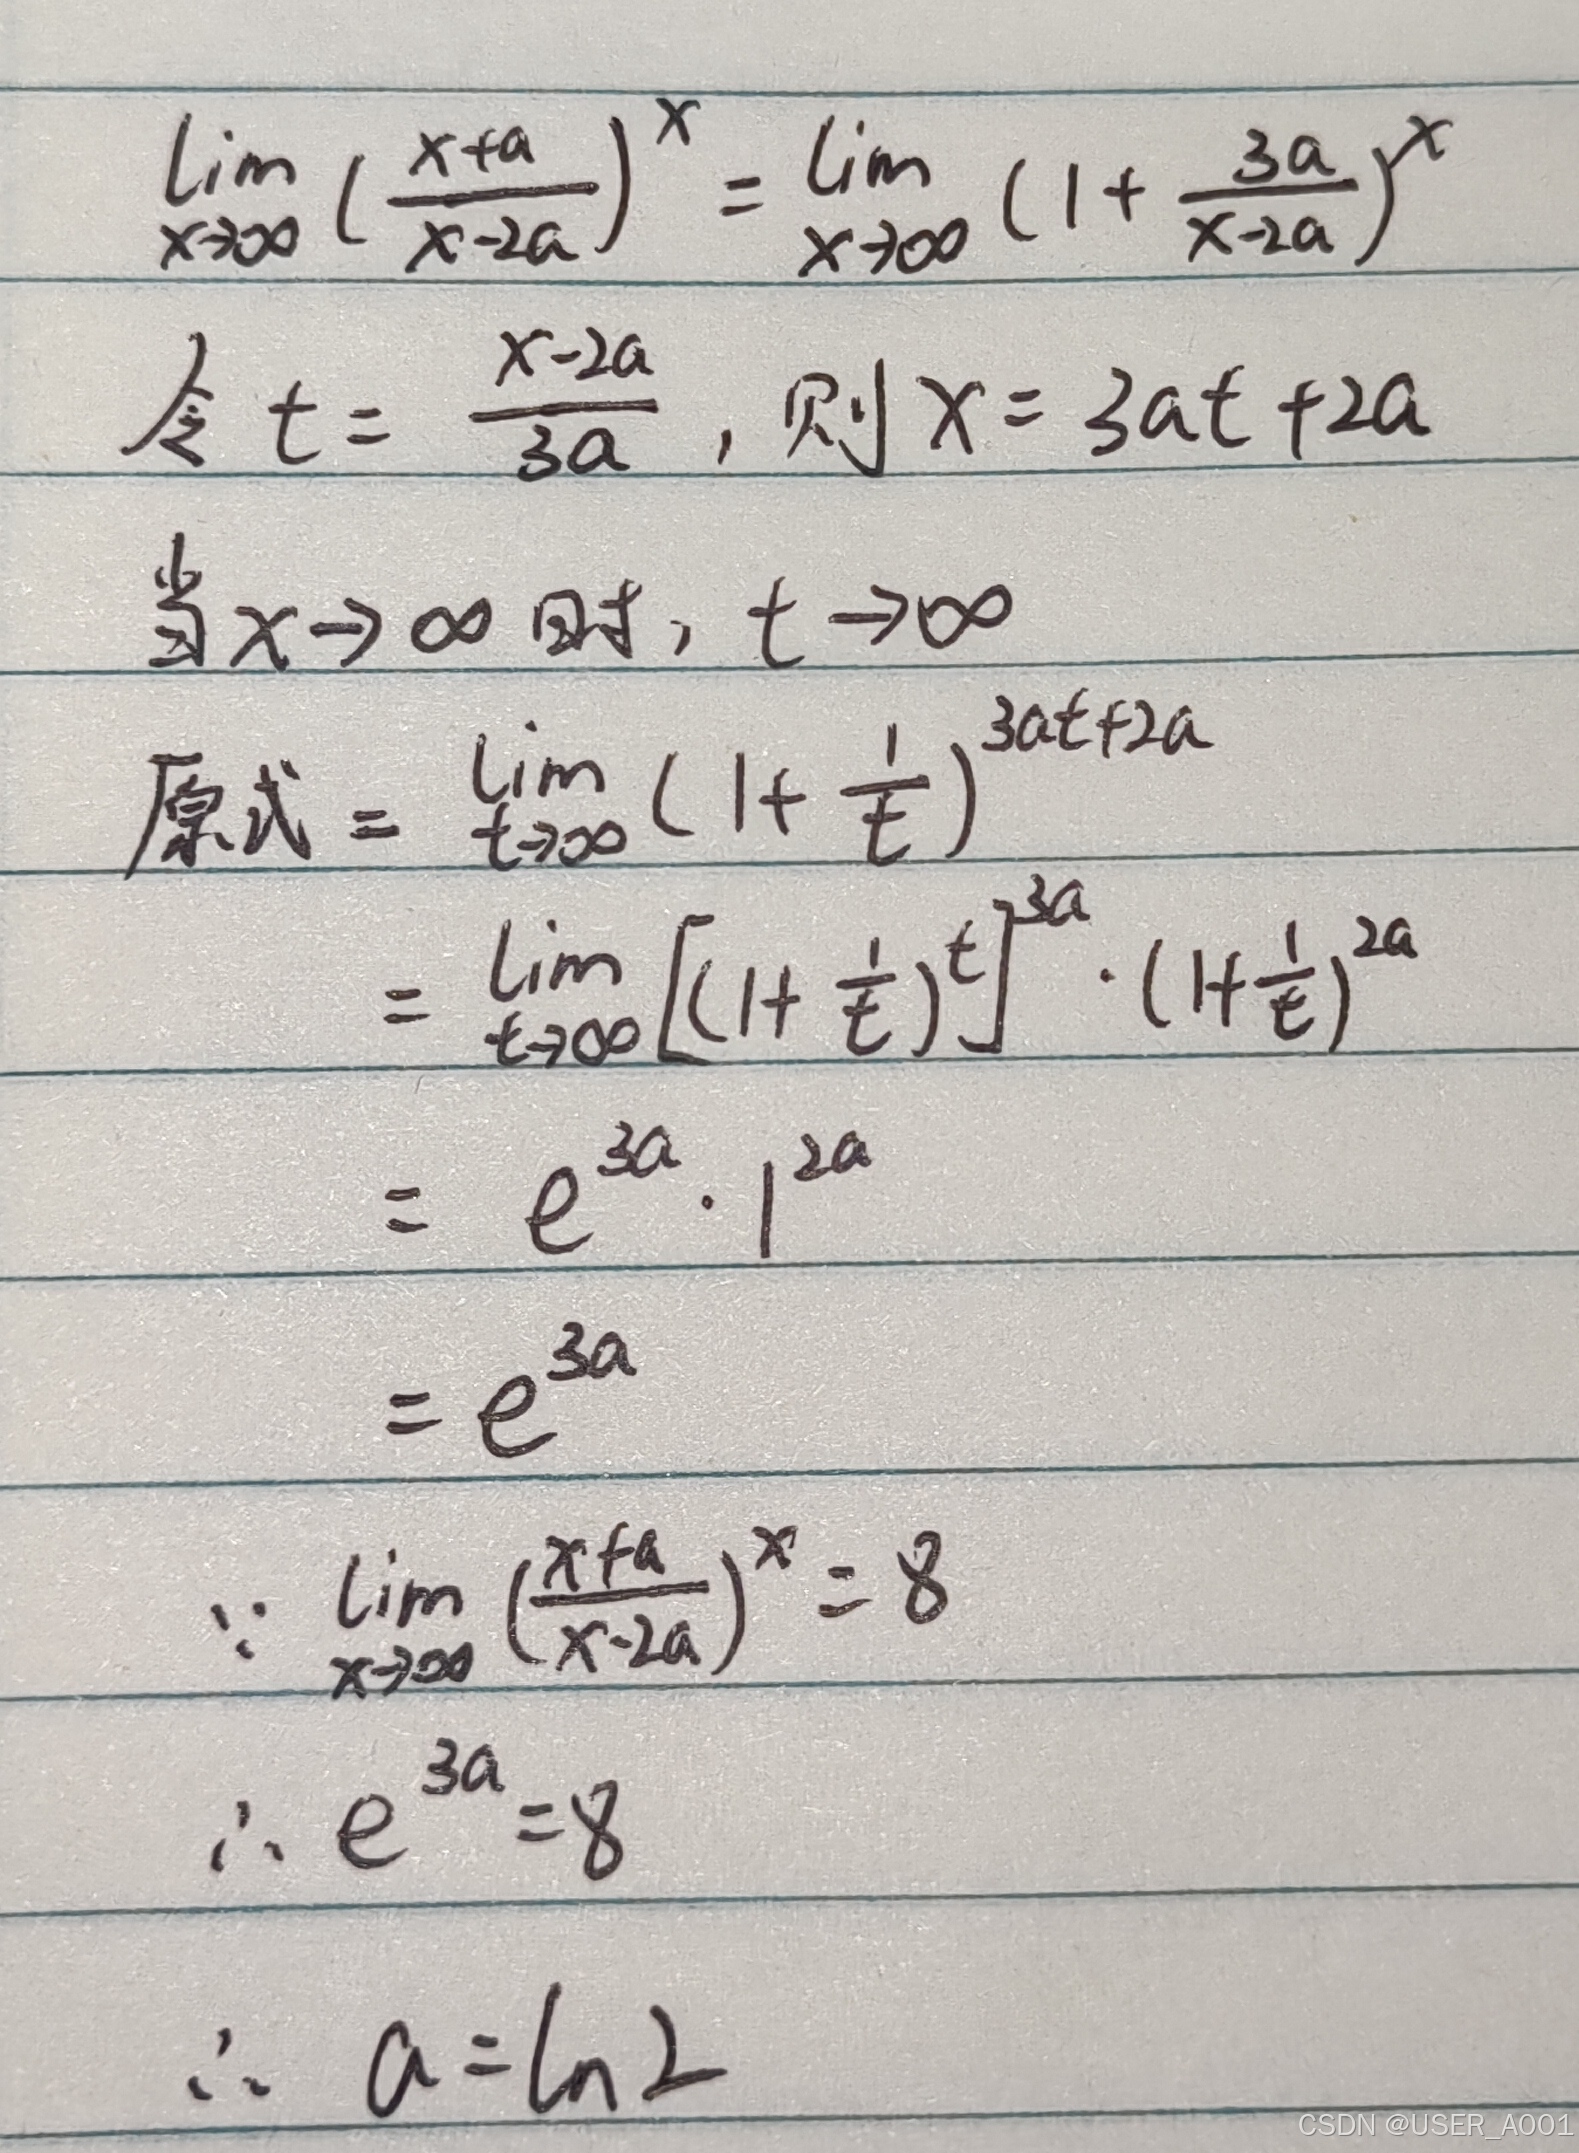 lim x→∞ (x+a / x-2a)^x = lim x→∞ (1 + 3a / x-2a)^x
令 t = x-2a / 3a , 则 x = 3at + 2a
当 x→∞ 时, t→∞
原式 = lim t→∞ (1 + 1/t)^3at+2a
= lim t→∞ [(1 + 1/t)^t]^3a · (1+1/t)^2a
= e^3a · 1^2a
= e^3a
∵ lim x→∞ (x+a / x-2a)^x = 8
∴ e^3a = 8
∴ a = ln2
CSDN @USER_A001